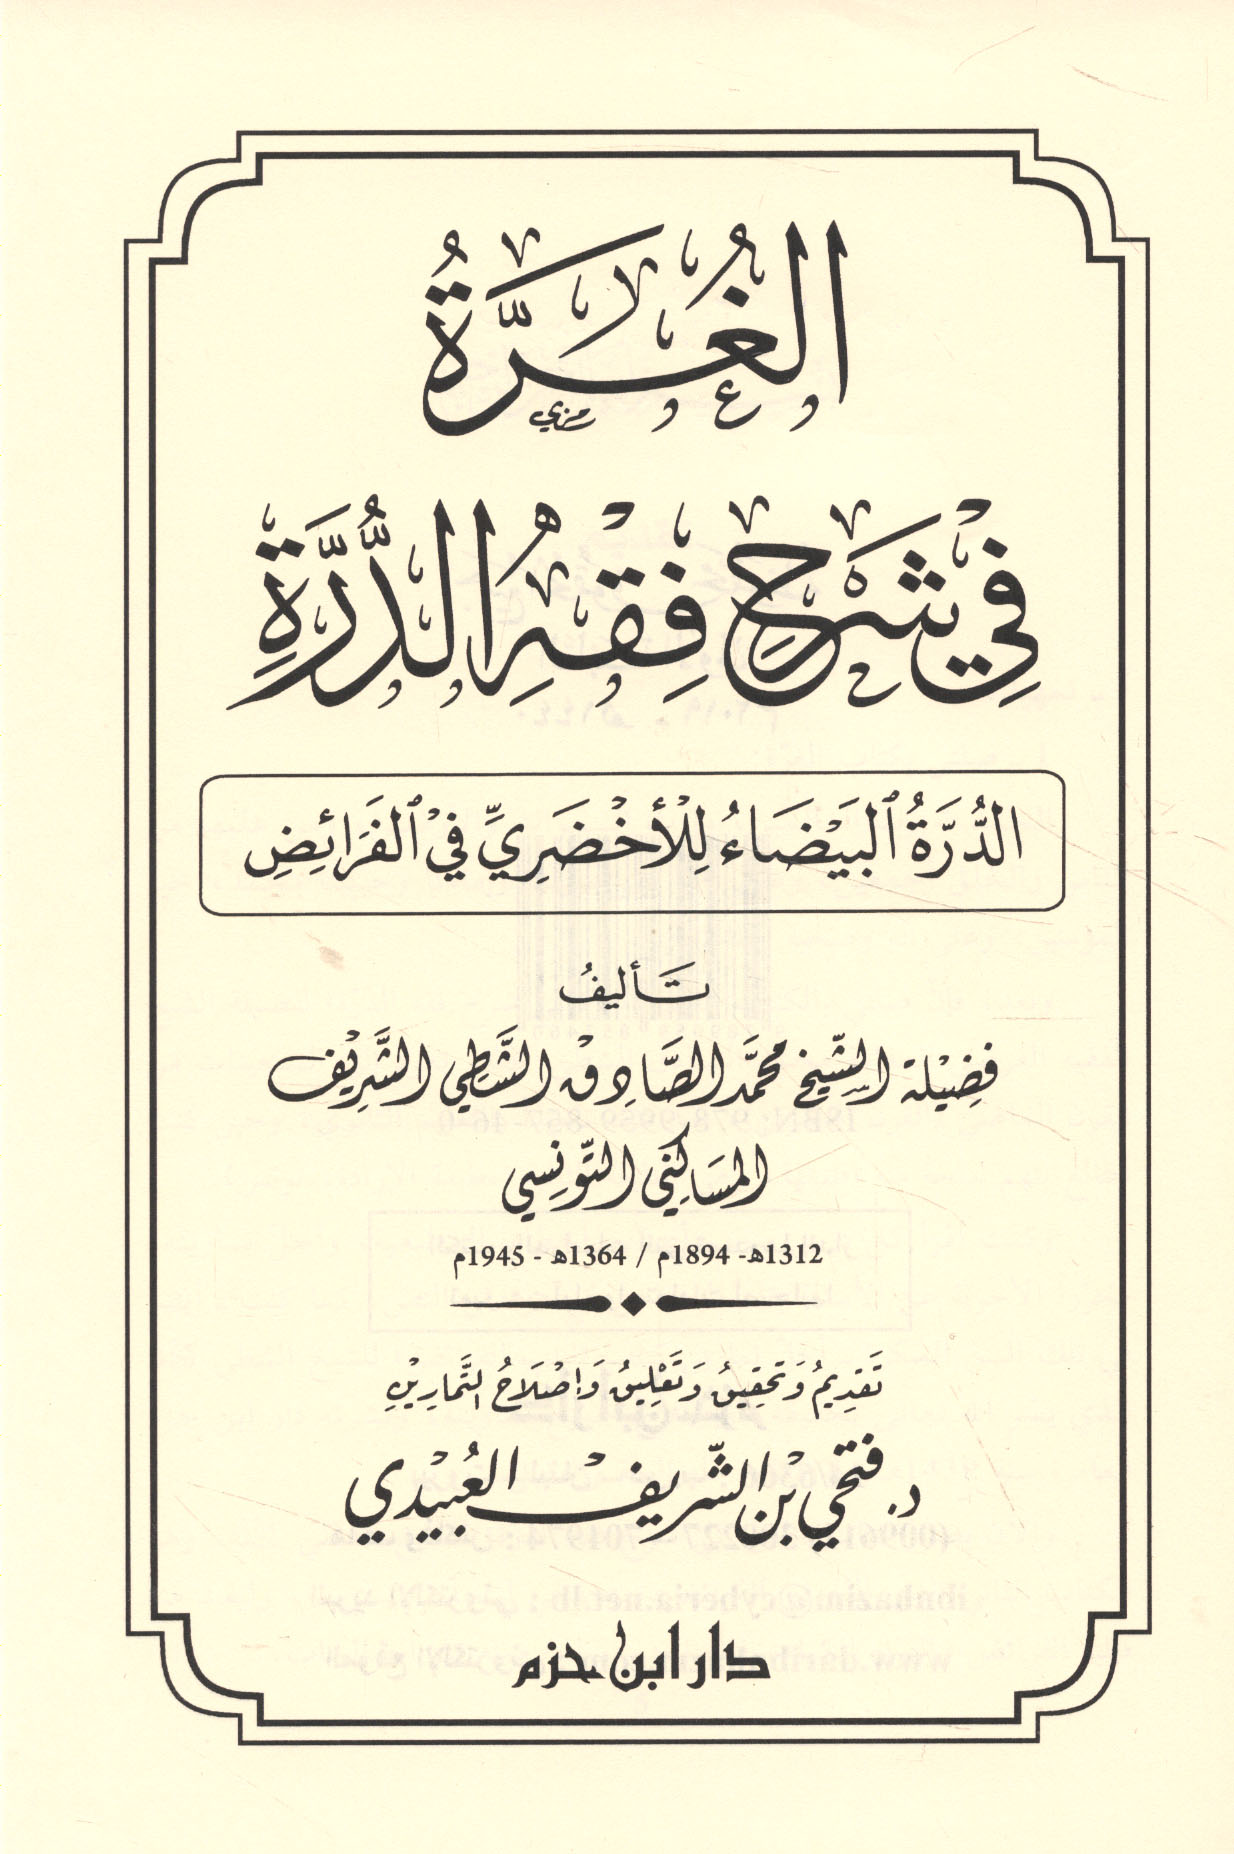 الغُرَّةُ
فِي شَرْحِ فِقْهِ الدُّرَّةِ
الدُّرَّةُ ٱلبَيْضَاءُ لِلْأَخْضَرِيِّ فِي ٱلفَرَائِضِ
تَأليفُ
فَضِيْلة الشّيخ محمَّد الصَّادِق الشَّطِي الشَّرِيْف
المسَاكنِي التّونسِي
1312هـ- 1894م / 1364هـ - 1945م
تَقدِيمُ وَتحقِيقُ وَتَعْلِيقُ وَإصْلَاحُ التَّمَارِيْنِ
د. فتحي بْن الشّريف العُبيْدي
دار ابن حزم